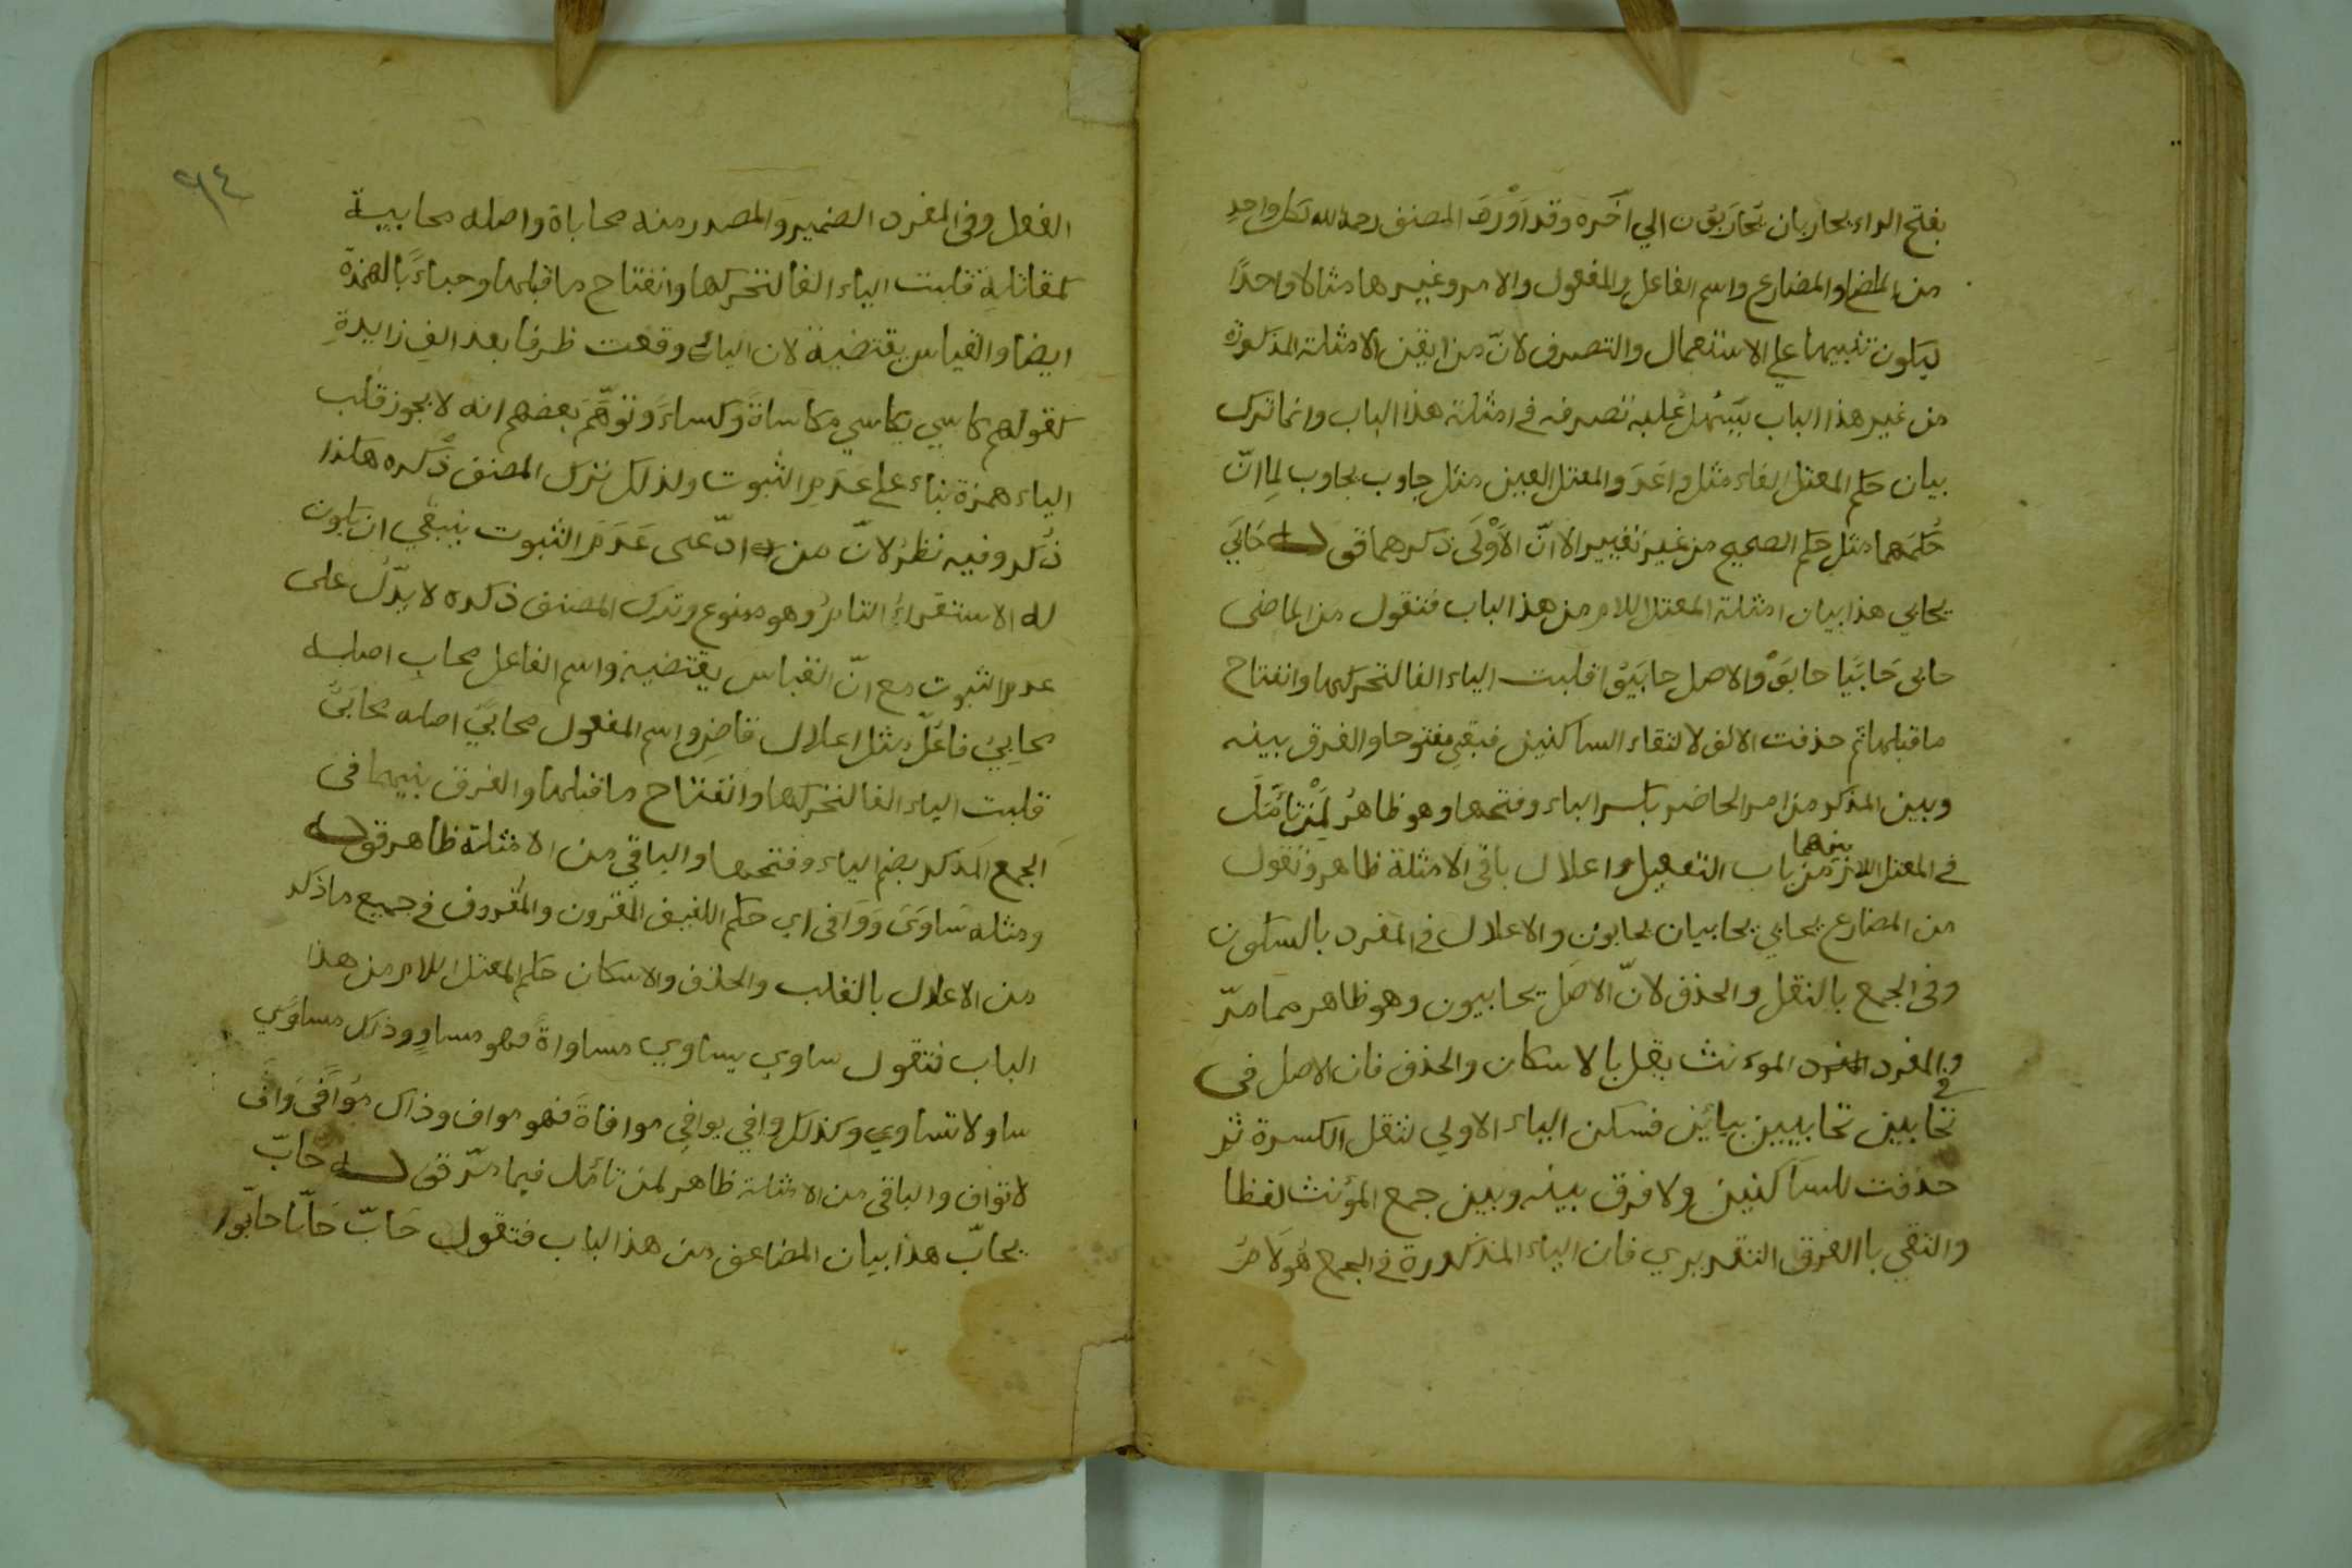 بفتح الراء يحاربان يحاربون الي آخره وقد اَوْرَدَ المصنف رحمه الله لكل واحدٍ
من الماضي والمضارع واسم الفاعل والمفعول والامر وغيرها مثالا واحدًا
ليكون تنبيها علي الاستعمال والتصرف لانّ من ايقن الامثلة المذكورة
من غير هذا الباب يَسهُل عليه تصرفه في امثلة هذا الباب وانما ترك
بيان حكم المعتل الفاء مثل واعَدَ والمعتل العين مثل جاوب يجاوب لِما انّ
حُكمَهما مثل حكم الصحيح من غير تغيير الا انّ الاَوْلَي ذكرهما قوله حَابَي
يحابي هذا بيان امثلة المعتل اللام من هذا الباب فتقول من الماضى
حابى حَابَيَا حابَوْا والاصل حابَيُوا قلبت الياء الفا لتحركها وانفتاح
ما قبلها ثم حذفت الالف لالتقاء الساكنين فبقي مفتوحا والفرق بينه
وبين المذكر من امر الحاضر بكسر الباء وفتحها وهو ظاهرُ لِمَنْ تَأمَّلَ
بينهما
في المعتل اللام من باب التفعيل واعلال باقى الامثلة ظاهر وتقول
من المضارع يحابي يحابيان يحابون والاعلال في المفرد بالسكون
وفى الجمع بالنقل والحذف لانّ الاصل يحابيون وهو ظاهر مما مرّ
وفي المفرد المفرد الموءنث يعل بالاسكان والحذف فان الاصل فى
تحابين تحابيين بيائين فسكن الياء الاولي لثقل الكسرة ثم
حذفت للساكنين ولا فرق بينه وبين جمع المؤنث لفظا
والتقي باالفرق التقديري فان الياء المذكورة في الجمع هُو لَامُ
٩٤
الفعل وفى المفرد الضمير والمصدر منه محاباة واصله محابيية
كمقاتلة قلبت الياء الفا لتحركها وانفتاح ما قبلها وحباءً بالهمزة
ايضا والقياس يقتضيه لان الياء وقعت طرفا بعد الفٍ زايدةٍ
كقولهم كاسي يكاسي مكاساةً وكساءً وتوهَّمَ بعضهم انه لا يجوز قلب
الياء همزة بناء علي عَدَمِ الثبوت ولذلك ترك المصنف ذكره هكذا
ذُكر وفيه نظرٌ لانّ من ادّعى عَدَمَ الثبوت ينبغي ان يكون
له الاستقراءُ التامُّ وهو ممنوع وترك المصنف ذكره لا يدّلُ على
عدم الثبوت مع انّ القياس يقتضيه واسم الفاعل محابٍ اصله
محابِيٌ فاعَلّ مثل اعلال قاضٍ واسم المفعول محابيً اصله محابَيٌ
قلبت الياء الفا لتحركها وانفتاح ما قبلها والفرق بينهما فى
الجمع المذكر بضم الباء وفتحها والباقي من الامثلة ظاهر قوله
ومثله سَاوَىَ وَوَافى اي حكم اللفيف المقرون والمفروق في جميع ما ذكر
من الاعلال بالقلب والحذف والاسكان حكم المعتل اللام من هذا
الباب فتقول ساوي يساوي مساواةً فهو مساوٍ وذاك مساوًي
ساو لا تساوي وكذلك وافي يوافِي موافاةً فهو مواف وذاك مُوافًى وَافَ
لا تواف والباقى من الامثلة ظاهر لمن تأمل فيما مرّ قوله حَابّ
يحابّ هذا بيان المضاعف من هذا الباب فتقول حَابّ حَابّا حابّوا